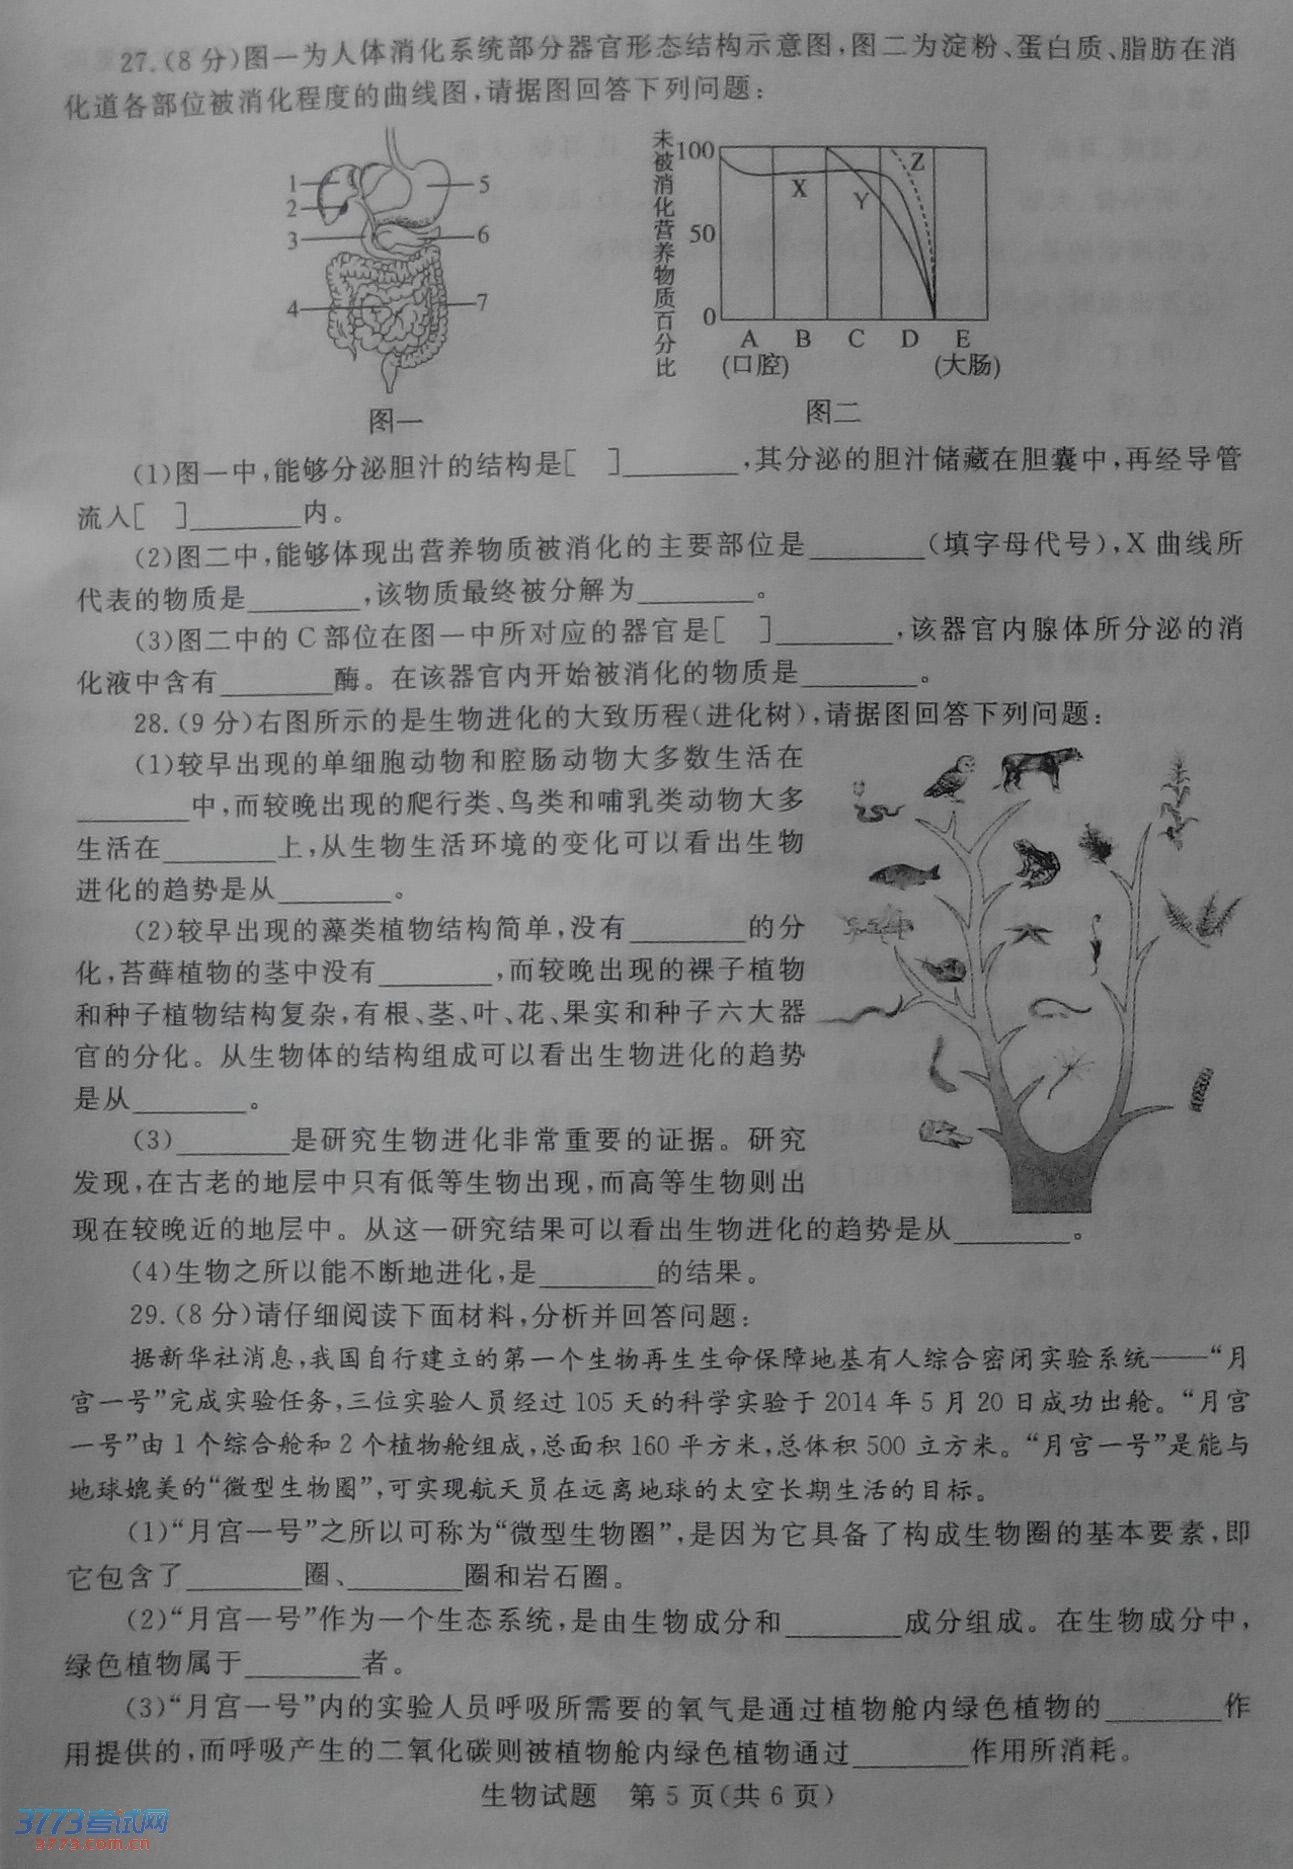 27.(8分)图一为人体消化系统部分器官形态结构示意图,图二为淀粉、蛋白质、脂肪在消
化道各部位被消化程度的曲线图,请据图回答下列问题:
1
2
3
4
5
6
7
图一
未被消化营养物质百分比
100
50
0
X
Y
Z
A B C D E
(口腔) (大肠)
图二
(1)图一中,能够分泌胆汁的结构是[ ]________,其分泌的胆汁储藏在胆囊中,再经导管
流入[ ]________内。
(2)图二中,能够体现出营养物质被消化的主要部位是________(填字母代号),X曲线所
代表的物质是________,该物质最终被分解为________。
(3)图二中的C部位在图一中所对应的器官是[ ]________,该器官内腺体所分泌的消
化液中含有________酶。在该器官内开始被消化的物质是________。
28.(9分)右图所示的是生物进化的大致历程(进化树),请据图回答下列问题:
(1)较早出现的单细胞动物和腔肠动物大多数生活在
________中,而较晚出现的爬行类、鸟类和哺乳类动物大多
生活在________上,从生物生活环境的变化可以看出生物
进化的趋势是从________。
(2)较早出现的藻类植物结构简单,没有________的分
化,苔藓植物的茎中没有________,而较晚出现的裸子植物
和种子植物结构复杂,有根、茎、叶、花、果实和种子六大器
官的分化。从生物体的结构组成可以看出生物进化的趋势
是从________。
(3)________是研究生物进化非常重要的证据。研究
发现,在古老的地层中只有低等生物出现,而高等生物则出
现在较晚近的地层中。从这一研究结果可以看出生物进化的趋势是从________。
(4)生物之所以能不断地进化,是________的结果。
29.(8分)请仔细阅读下面材料,分析并回答问题:
据新华社消息,我国自行建立的第一个生物再生生命保障地基有人综合密闭实验系统——“月
宫一号”完成实验任务,三位实验人员经过105天的科学实验于2014年5月20日成功出舱。“月宫
一号”由1个综合舱和2个植物舱组成,总面积160平方米,总体积500立方米。“月宫一号”是能与
地球媲美的“微型生物圈”,可实现航天员在远离地球的太空长期生活的目标。
(1)“月宫一号”之所以可称为“微型生物圈”,是因为它具备了构成生物圈的基本要素,即
它包含了________圈、________圈和岩石圈。
(2)“月宫一号”作为一个生态系统,是由生物成分和________成分组成。在生物成分中,
绿色植物属于________者。
(3)“月宫一号”内的实验人员呼吸所需要的氧气是通过植物舱内绿色植物的________作
用提供的,而呼吸产生的二氧化碳则被植物舱内绿色植物通过________作用所消耗。
生物试题 第5页(共6页)
3773考试网
3773.com.cn